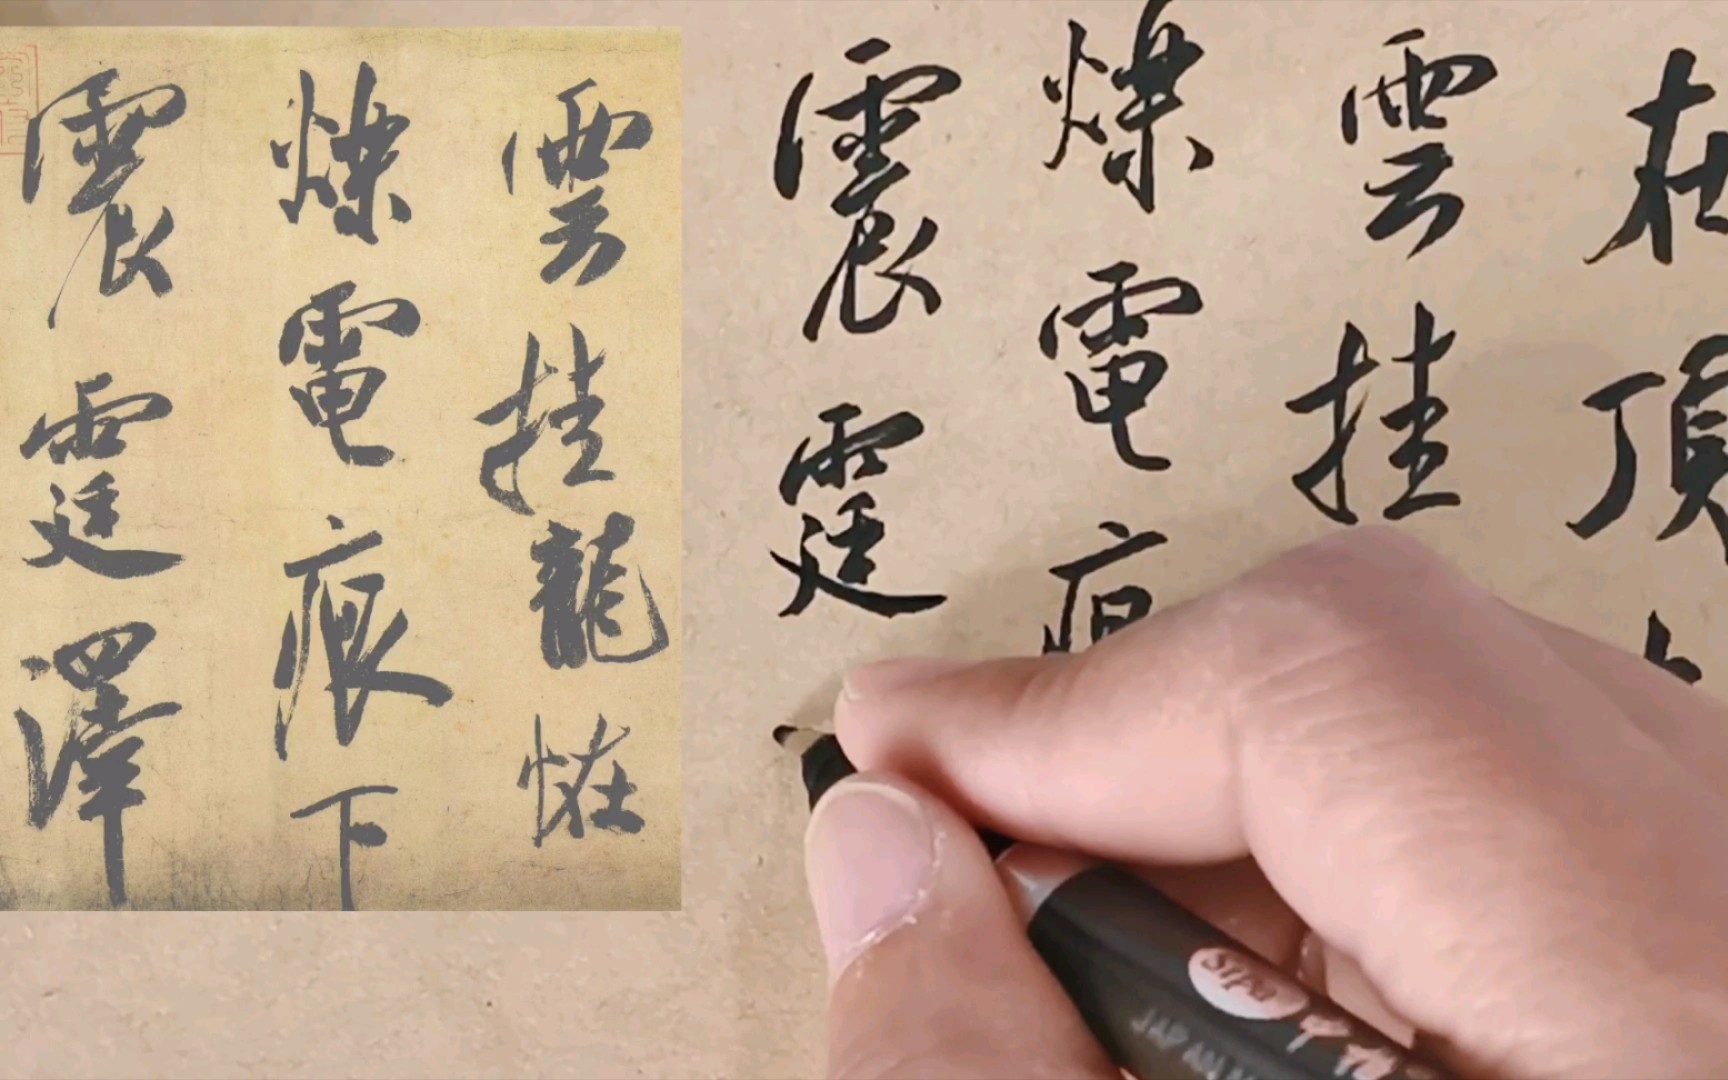 雲挂龍恠
爍電痕下
震霆澤
在頂
雲挂
爍電
震霆
Sipa